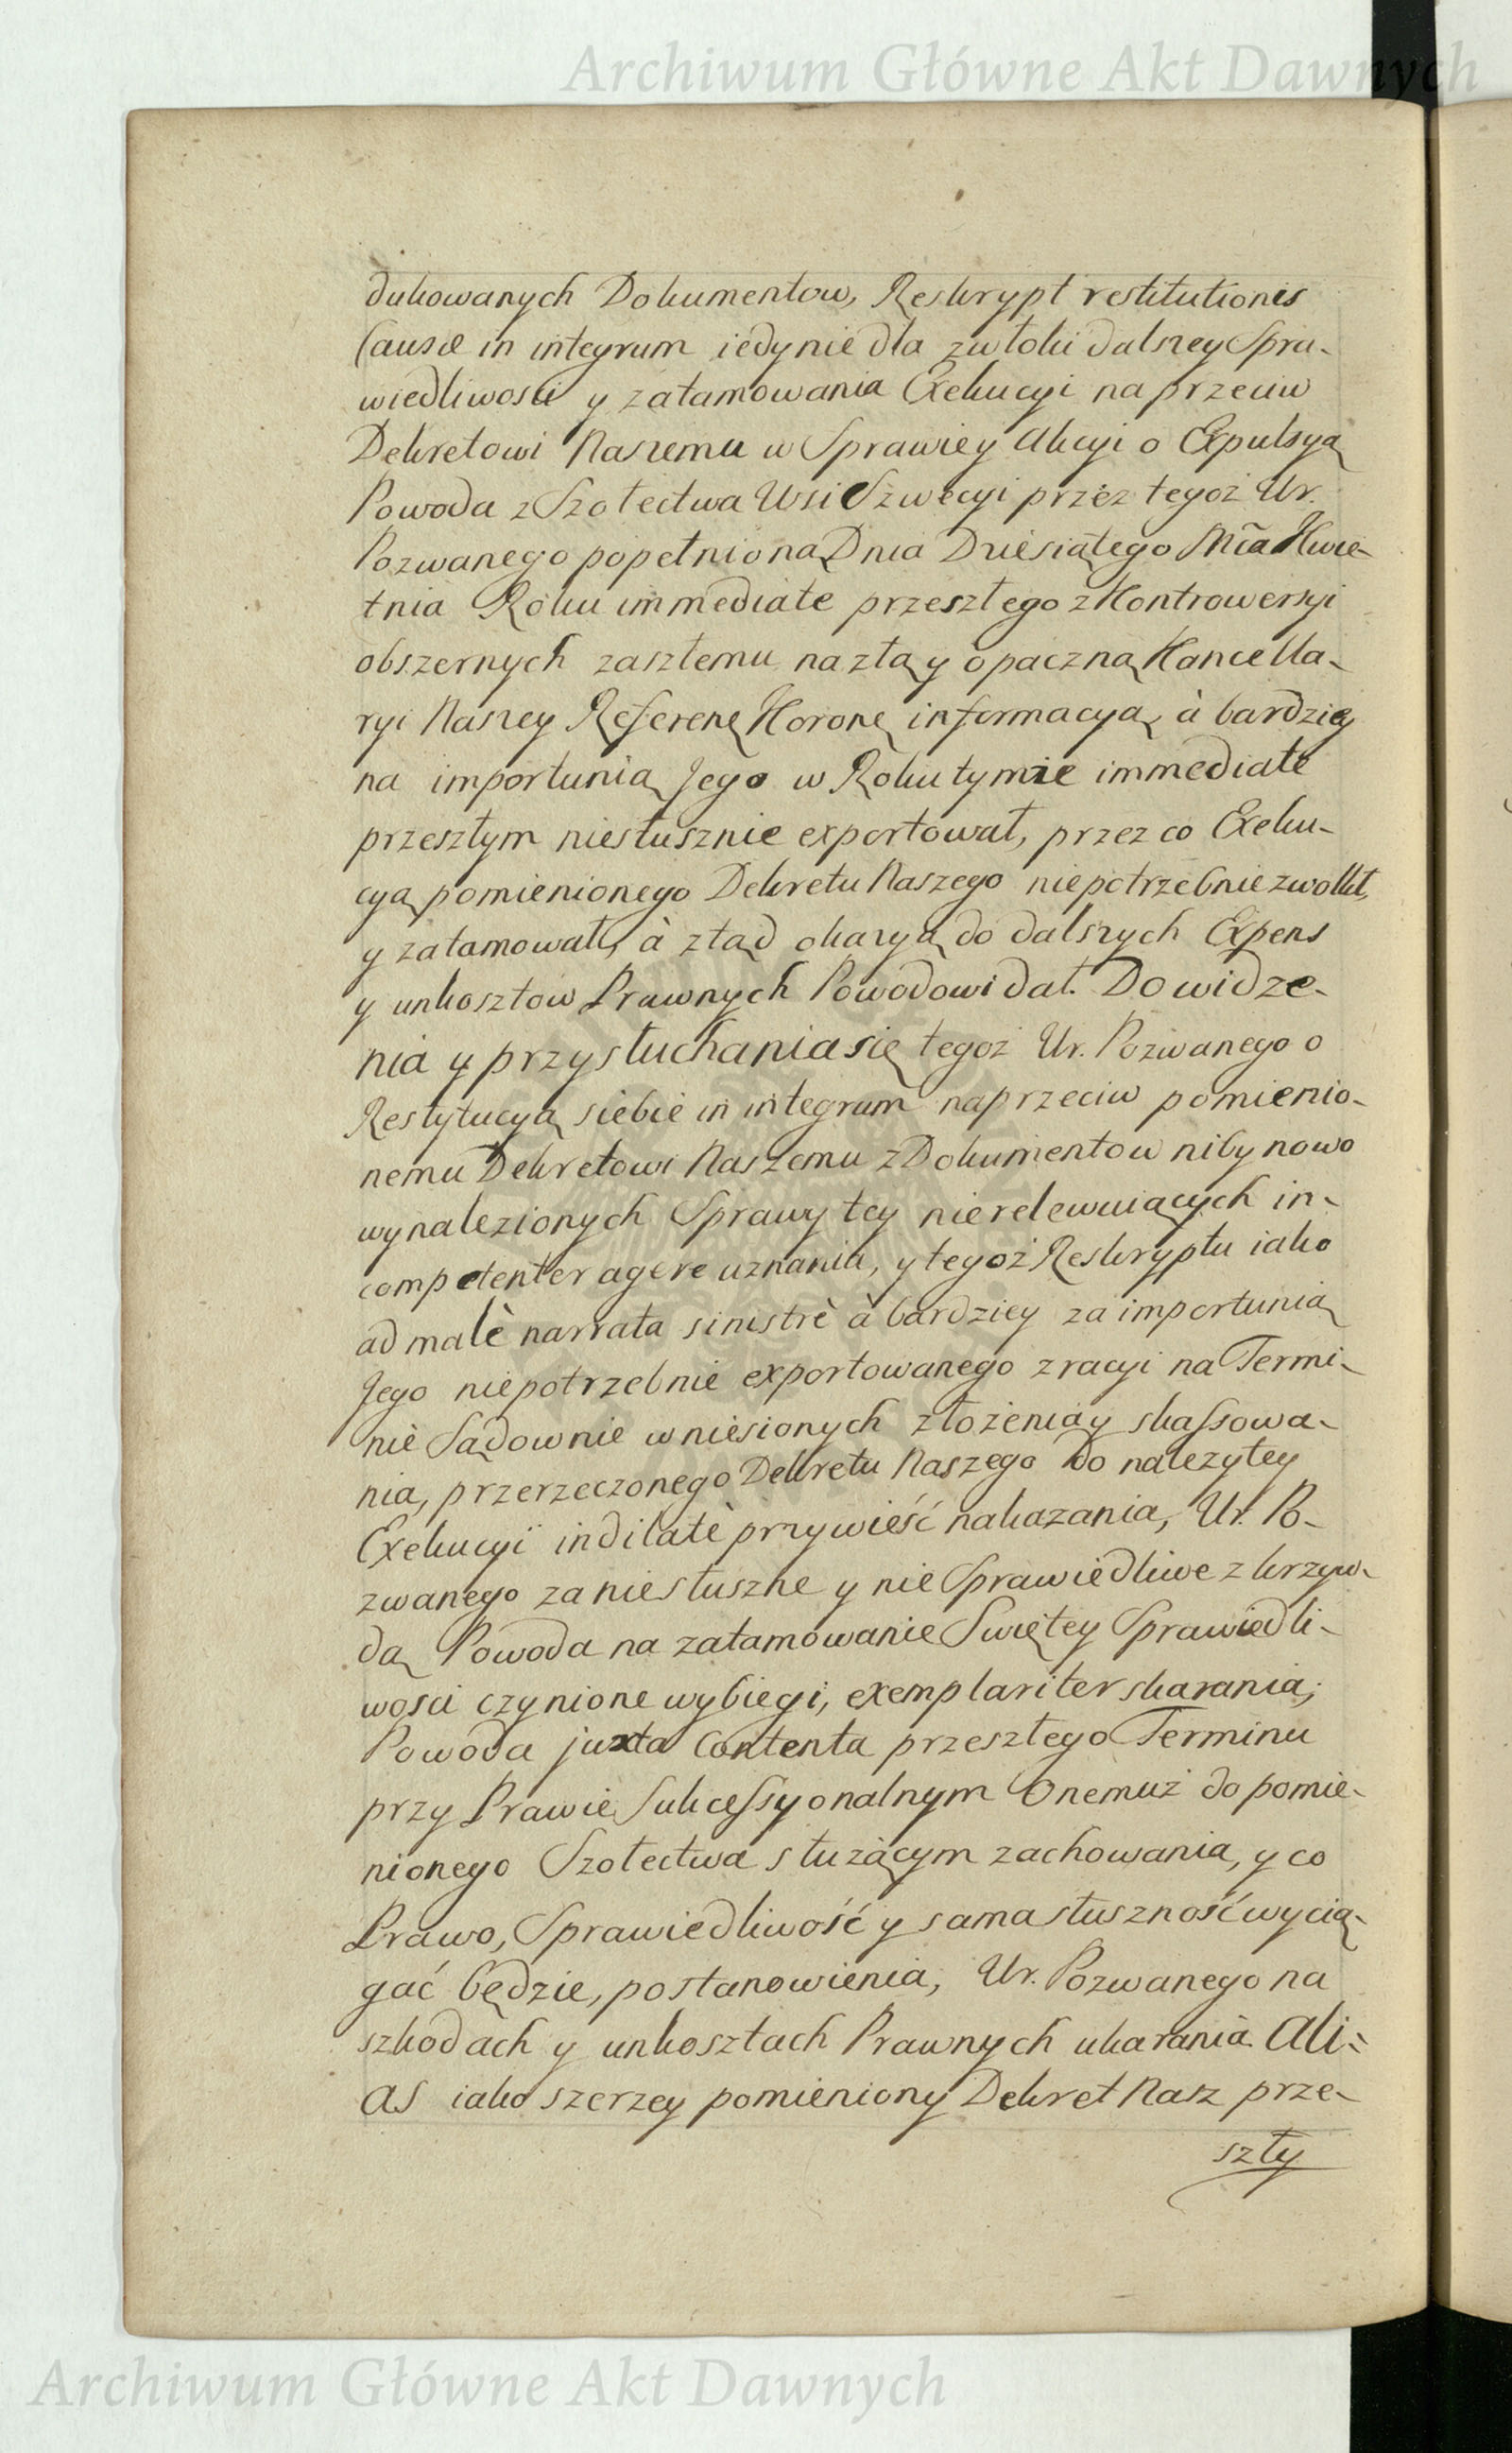 Archiwum Główne Akt Dawnych
dukowanych Dokumentow, Reskrypt restitutionis
Causæ in integrum iedynie dla zwłoki dalszey Spra-
wiedliwosci y zatamowania Exekucyi na przeciw
Dekretowi Naszemu w Sprawie y Akcyi o Expulsyą
Powoda z Szołectwa Wsi Szwecyi przez tegoż Ur.
Pozwanego popełnioną Dnia Dziesiątego Mca Kwie-
tnia Roku immediate przeszłego z Kontrowersyi
obszernych zaszłemu na złą y opaczną Kancella-
ryi Naszey Referenę Koronę informacyą, à bardziey
na importunią Jego w Roku tymże immediate
przeszłym niesłusznie exportował, przez co Exeku-
cyą pomienionego Dekretu Naszego niepotrzebnie zwolkł,
y zatamował, à ztąd okazyą do dalszych Expens
y unkosztow Prawnych Powodowi dał. Do widze-
nia y przysłuchania się tegoż Ur. Pozwanego o
Restytucyą siebie in integrum naprzeciw pomienio-
nemu Dekretowi Naszemu z Dokumentow niby nowo
wynalezionych Sprawy tey nierelewuiących in-
competenter agere uznania, y tegoż Reskryptu iako
ad malè narrata sinistrè à bardziey za importunią
Jego niepotrzebnie exportowanego z racyi na Termi-
nie Sądownie wniesionych złożenia y skassowa-
nia, przerzeczonego Dekretu Naszego do należytey
Exekucyi indilatè przywieść nakazania, Ur. Po-
zwanego za niesłuszne y nie Sprawiedliwe z krzyw-
dą Powoda na zatamowanie Swiętey Sprawiedli-
wosci czynione wybiegi, exemplariter skarania;
Powoda juxta Contenta przeszłego Terminu
przy Prawie Sukcessyonalnym Onemuż do pomie-
nionego Szołectwa służącym zachowania, y co
Prawo, Sprawiedliwość y sama słuszność wycią-
gać będzie, postanowienia, Ur. Pozwanego na
szkodach y unkosztach Prawnych ukarania. Ali=
as iako szerzey pomieniony Dekret Nasz prze-
szły
Archiwum Główne Akt Dawnych